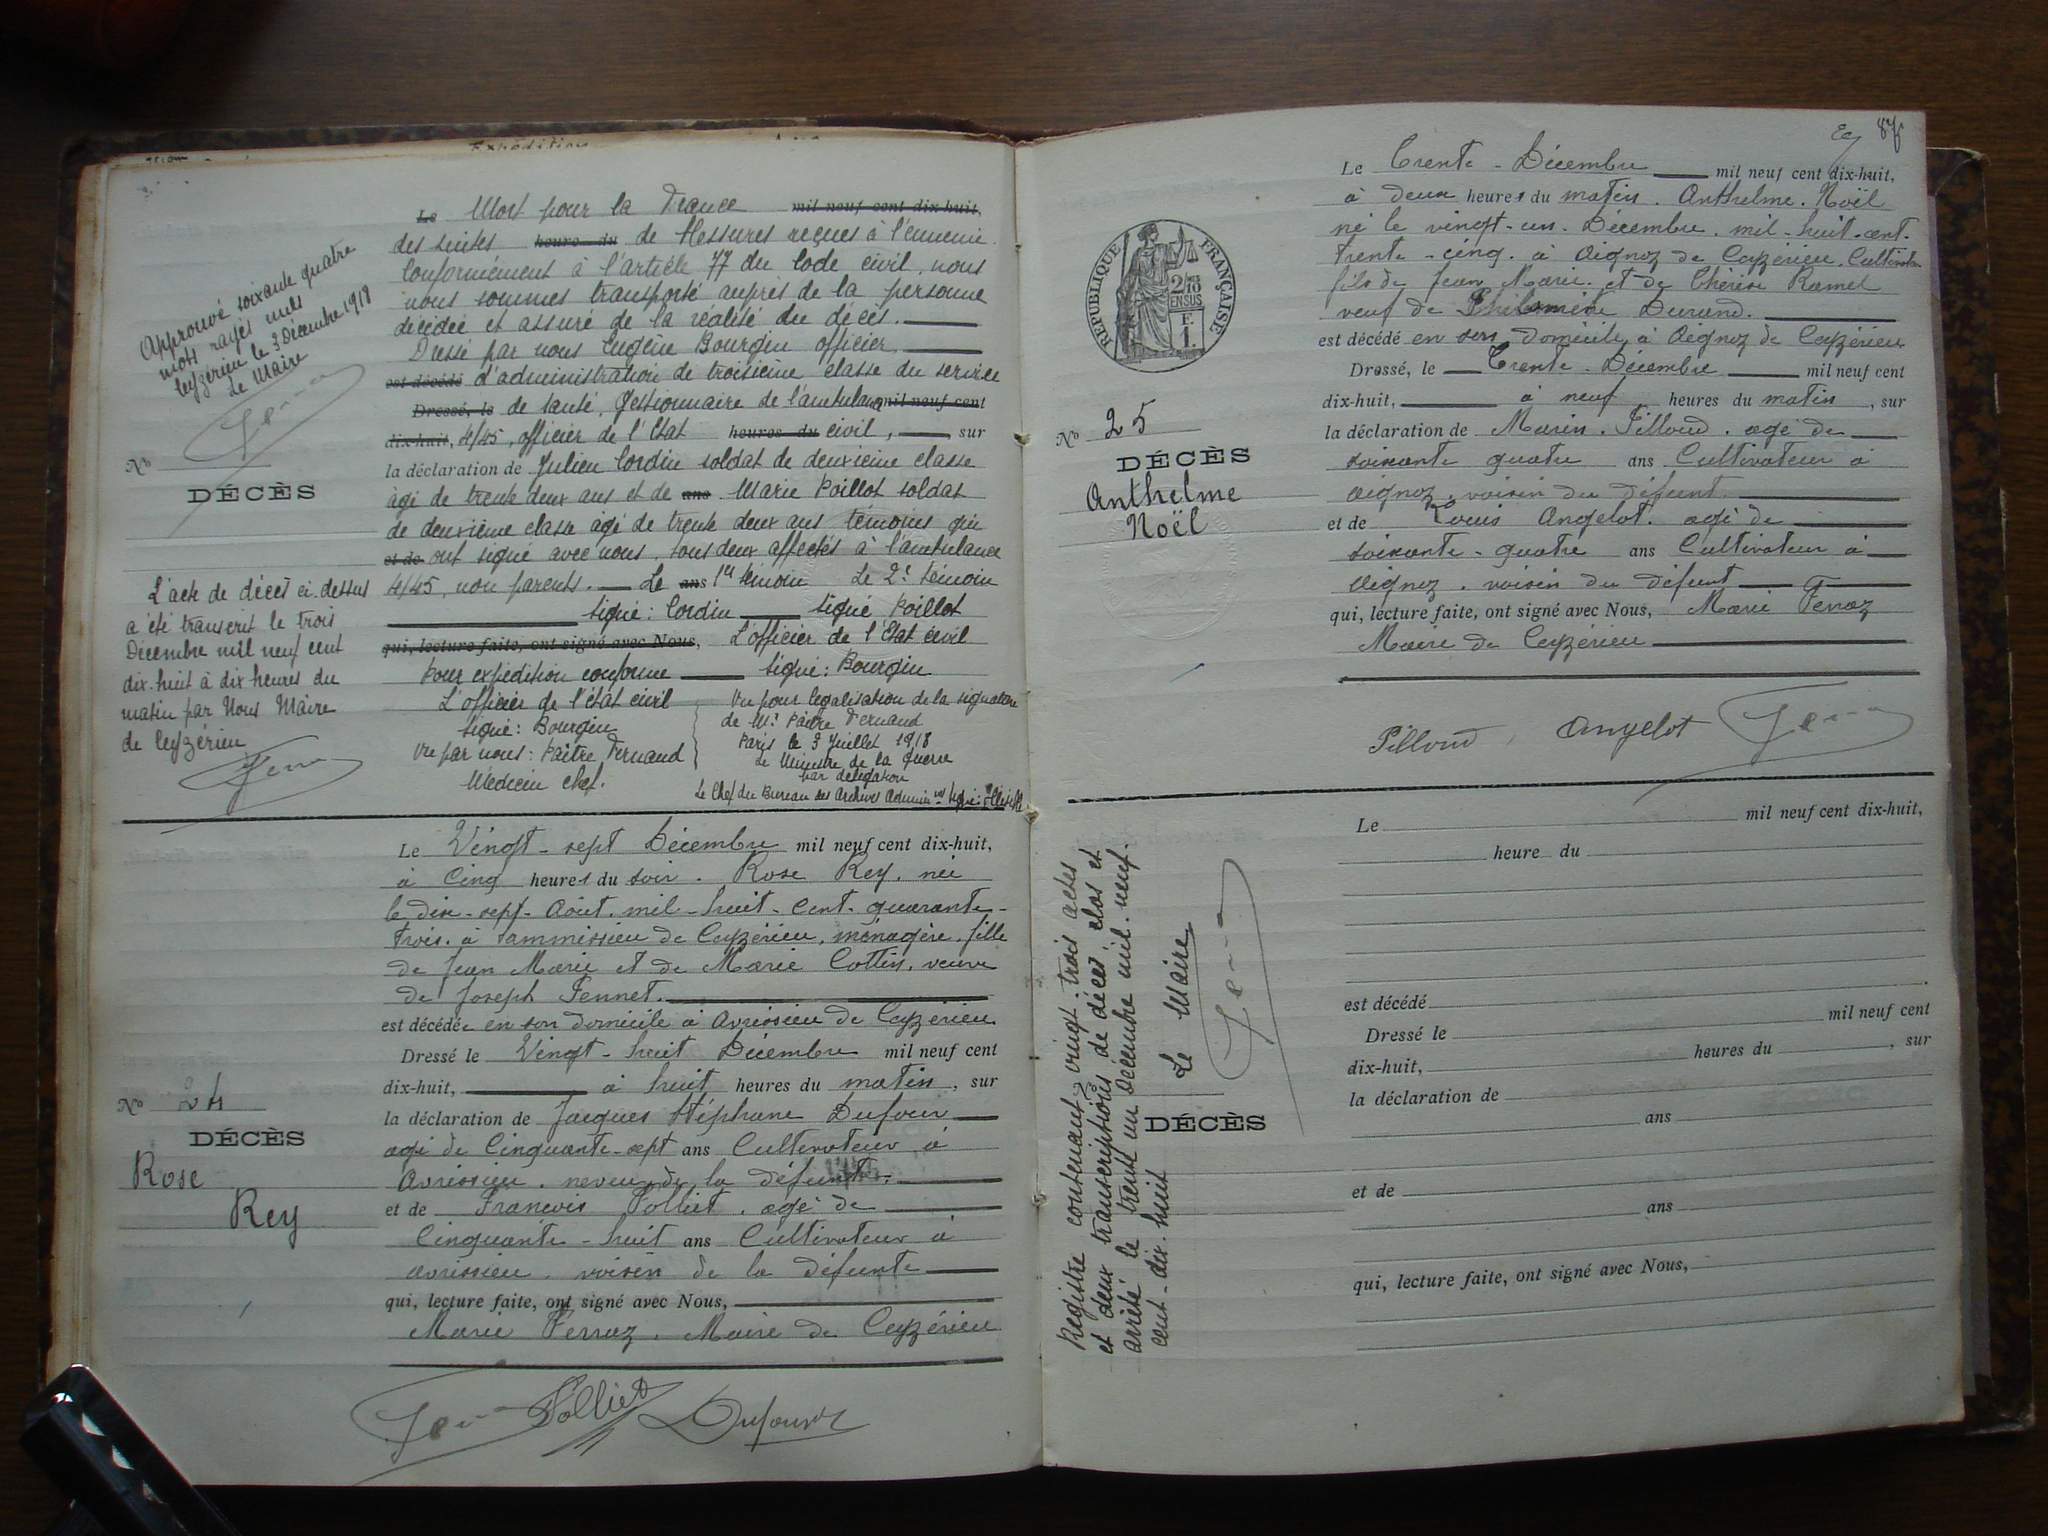 Mort pour la France mil neuf cent dix-huit,
des suites heure du de blessures reçues à l'ennemi.
Conformément à l'article 77 du Code civil, nous
nous sommes transporté auprès de la personne
décédée et assuré de la réalité du décès.
Dressé par nous Eugène Bourgin officier
est décédé d'administration de troisième classe du service
Dressé, le de santé, gestionnaire de l'ambulance mil neuf cent
dix-huit, 4/45, officier de l'Etat heures du civil, sur
la déclaration de Julien Cordin soldat de deuxième classe
âgé de trente deux ans et de ans Marie Poillot soldat
de deuxième classe âgé de trente deux ans témoins qui
et de ont signé avec nous, tous deux affectés à l'ambulance
4/45, non parents. Le ans 1er témoin Le 2e témoin
signé: Cordin signé Poillot
qui, lecture faite, ont signé avec Nous, L'officier de l'Etat civil
Pour expédition conforme signé: Bourgin
L'officier de l'état civil
signé: Bourgin
Vu par nous: Paître Fernand
Médecin chef.
Vu pour légalisation de la signature
de Mr Paître Fernand
Paris le 3 Juillet 1918
Le Ministre de la Guerre
par délégation
Le Chef du Bureau des Archives Admin
Approuvé soixante quatre
mots rayés nuls
Ceyzérieu le 3 Décembre 1918
Le Maire
No
DÉCÈS
L'acte de décès ci-dessus
a été transcrit le trois
Décembre mil neuf cent
dix-huit à dix heures du
matin par Nous Maire
de Ceyzérieu
Le Vingt-sept Décembre mil neuf cent dix-huit,
à Cinq heures du soir. Rose Rey, née
le dix-sept-Août. mil-huit-cent-quarante-
trois. à Sammissieu de Ceyzérieu, ménagère, fille
de Jean Marie et de Marie Cottin, veuve
de Joseph Fennet.
est décédée en son domicile à Avrissieu de Ceyzérieu
Dressé le Vingt-huit Décembre mil neuf cent
dix-huit, à huit heures du matin, sur
la déclaration de Jacques Stéphane Dufour
agé de Cinquante-sept ans Cultivateur à
Avrissieu. neveu de la défunte
et de François Folliet. agé de
Cinquante-huit ans Cultivateur à
avrissieu. voisin de la défunte
qui, lecture faite, ont signé avec Nous,
Marie Ferraz. Maire de Ceyzérieu
No 24
DÉCÈS
Rose
Rey
Folliet Dufour
87
Le Trente-Décembre mil neuf cent dix-huit,
à deux heures du matin. Anthelme. Noël
né le vingt-un. Décembre. mil-huit-cent-
trente-cinq. à Aignoz de Ceyzérieu. Cultivateur
fils de Jean Marie. et de Thérèse Ramel
veuf de Philomène Durand.
est décédé en son domicile à Aignoz de Ceyzérieu
Dressé, le Trente-Décembre mil neuf cent
dix-huit, à neuf heures du matin, sur
la déclaration de Marin. Pilloud. agé de
soixante quatre ans Cultivateur à
aignoz, voisin du défunt
et de Louis Angelot. agé de
soixante-quatre ans Cultivateur à
Aignoz. voisin du défunt
qui, lecture faite, ont signé avec Nous, Marie Ferraz
Maire de Ceyzérieu
Pilloud Angelot
RÉPUBLIQUE FRANÇAISE
2/10
EN SUS
F
1.
No 25
DÉCÈS
Anthelme
Noël
Le mil neuf cent dix-huit,
heure du
est décédé
Dressé le mil neuf cent
dix-huit, heures du , sur
la déclaration de
ans
et de
ans
qui, lecture faite, ont signé avec Nous,
DÉCÈS
Registre contenant vingt-trois actes
et deux transcriptions de décès clos et
arrêté le trente un Décembre mil-neuf-
cent-dix-huit
Le Maire